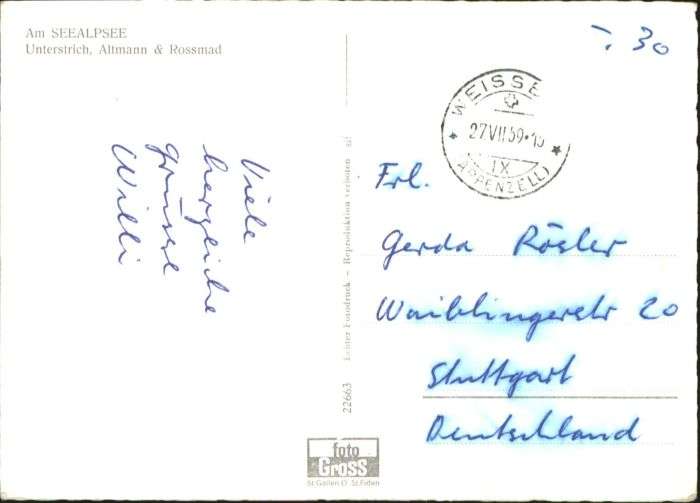 Am SEEALPSEE
Unterstrich, Altmann & Rossmad
-. 30
WEISSB
27 VII 59-15
IX
(APPENZELL)
Viele
herzliche
grüsse
Willi
Echter Fotodruck – Reproduktion verboten
22663
Frl.
Gerda Rösler
Waiblingerstr 20
Stuttgart
Deutschland
foto
Gross
St.Gallen O St.Fiden